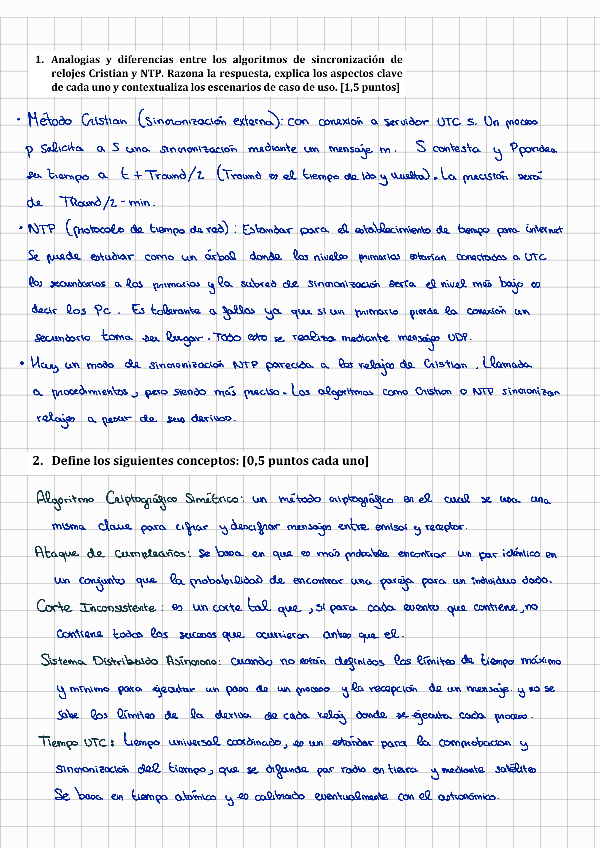 1. Analogías y diferencias entre los algoritmos de sincronización de
relojes Cristian y NTP. Razona la respuesta, explica los aspectos clave
de cada uno y contextualiza los escenarios de caso de uso. [1,5 puntos]
• Método Cristian (sincronización externa): con conexión a servidor UTC S. Un proceso
p solicita a S una sincronización mediante un mensaje m. S contesta y P pondea
su tiempo a t + Tround/2 (Tround es el tiempo de ida y vuelta). La precisión será
de TRound/2 - min.
• NTP (protocolo de tiempo de red): Estandar para el establecimiento de tiempo para internet
Se puede estudiar como un árbol donde los niveles primarios estarían conectados a UTC
los secundarios a los primarios y la subred de sincronización sería el nivel más bajo es
decir los Pc. Es tolerante a fallas ya que si un primario pierde la conexión un
secundario toma su lugar. Todo esto se realiza mediante mensajes UDP.
• Hay un modo de sincronización NTP parecida a los relojes de Cristian. Llamada
a procedimientos, pero siendo más preciso. Los algoritmos como Cristian o NTP sincronizan
relojes a pesar de sus derivas.
2. Define los siguientes conceptos: [0,5 puntos cada uno]
Algoritmo Criptográfico Simétrico: un método criptográfico en el cual se usa una
misma clave para cifrar y descifrar mensajes entre emisor y receptor.
Ataque de Cumpleaños: Se basa en que es más probable encontrar un par idéntico en
un conjunto que la probabilidad de encontrar una pareja para un individuo dado.
Corte Inconsistente: es un corte tal que, si para cada evento que contiene, no
contiene todos los sucesos que ocurrieron antes que el.
Sistema Distribuido Asíncrono: cuando no están definidos los límites de tiempo máximo
y mínimo para ejecutar un paso de un proceso y la recepción de un mensaje. y no se
sabe los límites de la deriva de cada reloj donde se ejecuta cada proceso.
Tiempo UTC: tiempo universal coordinado, es un estándar para la comprobacion y
sincronización del tiempo, que se difunde por radio en tierra y mediante satélites
Se basa en tiempo atómico y es calibrado eventualmente con el astronómico.